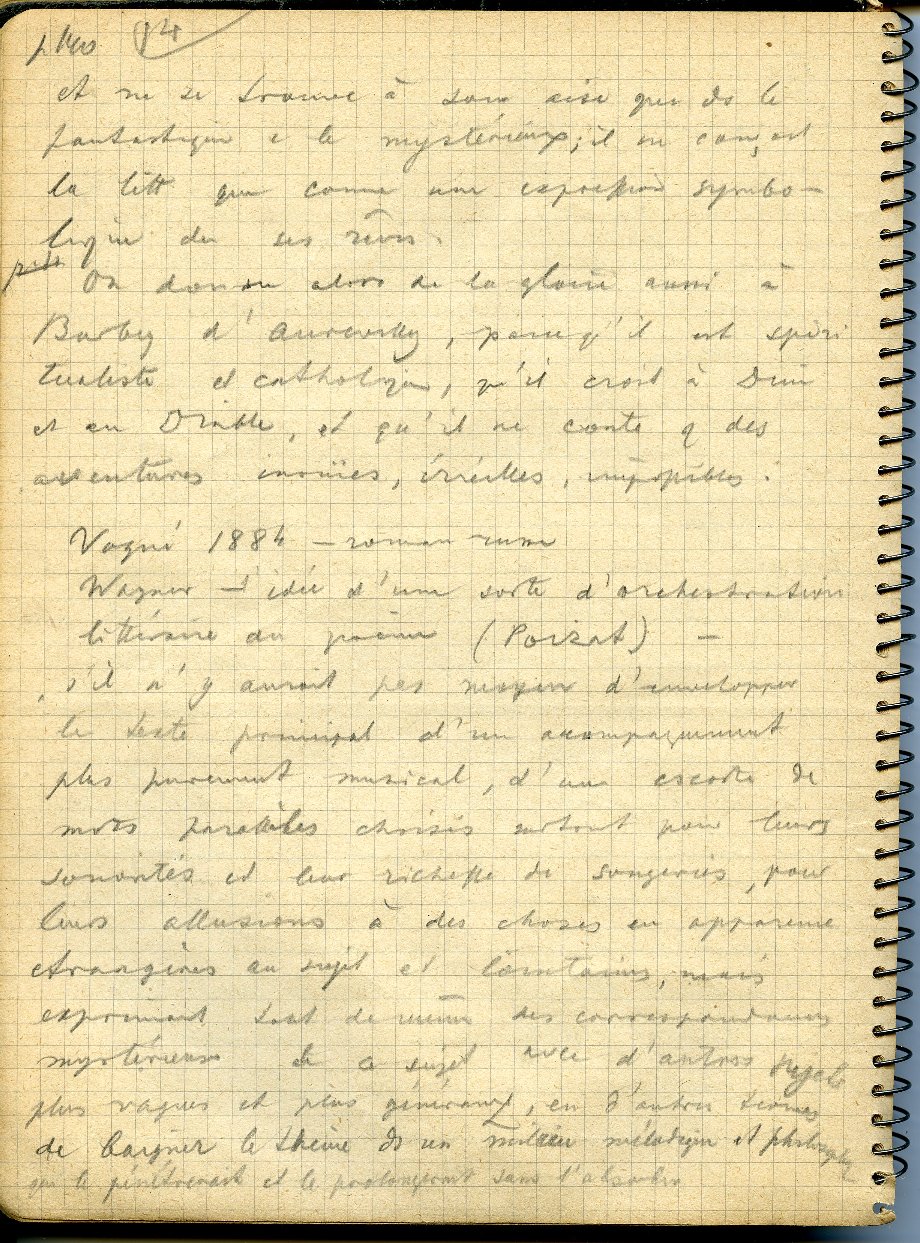 14
et ne se trouve à son aise que ds le
fantastique e le mystérieux; il ne conçoit
la litt que comme une expression symbo-
lique de ses rêves.
On donne alors de la gloire aussi à
Barbey d'Aurevilly, parce qu'il est spiri
tualiste et catholique, qu'il croit à Dieu
et au Diable, et qu'il ne conte q des
aventures inouïes, irréelles, impossibles.
Vogüé 1884 – roman russe
Wagner – l'idée d'une sorte d'orchestration
littéraire du poème (Poizat) –
s'il n'y aurait pas moyen d'envelopper
le texte principal d'un accompagnement
plus purement musical, d'une escorte de
mots parallèles choisis surtout pour leurs
sonorités et leur richesse de songeries, pour
leurs allusions à des choses en apparence
étrangères au sujet et lointaines, mais
exprimant tout de même des correspondances
mystérieuses de ce sujet avec d'autres sujets
plus vagues et plus généraux, en d'autres termes
de baigner le thème ds un milieu mélodique et philosophique
qui le pénétrerait et le prolongerait sans l'absorber